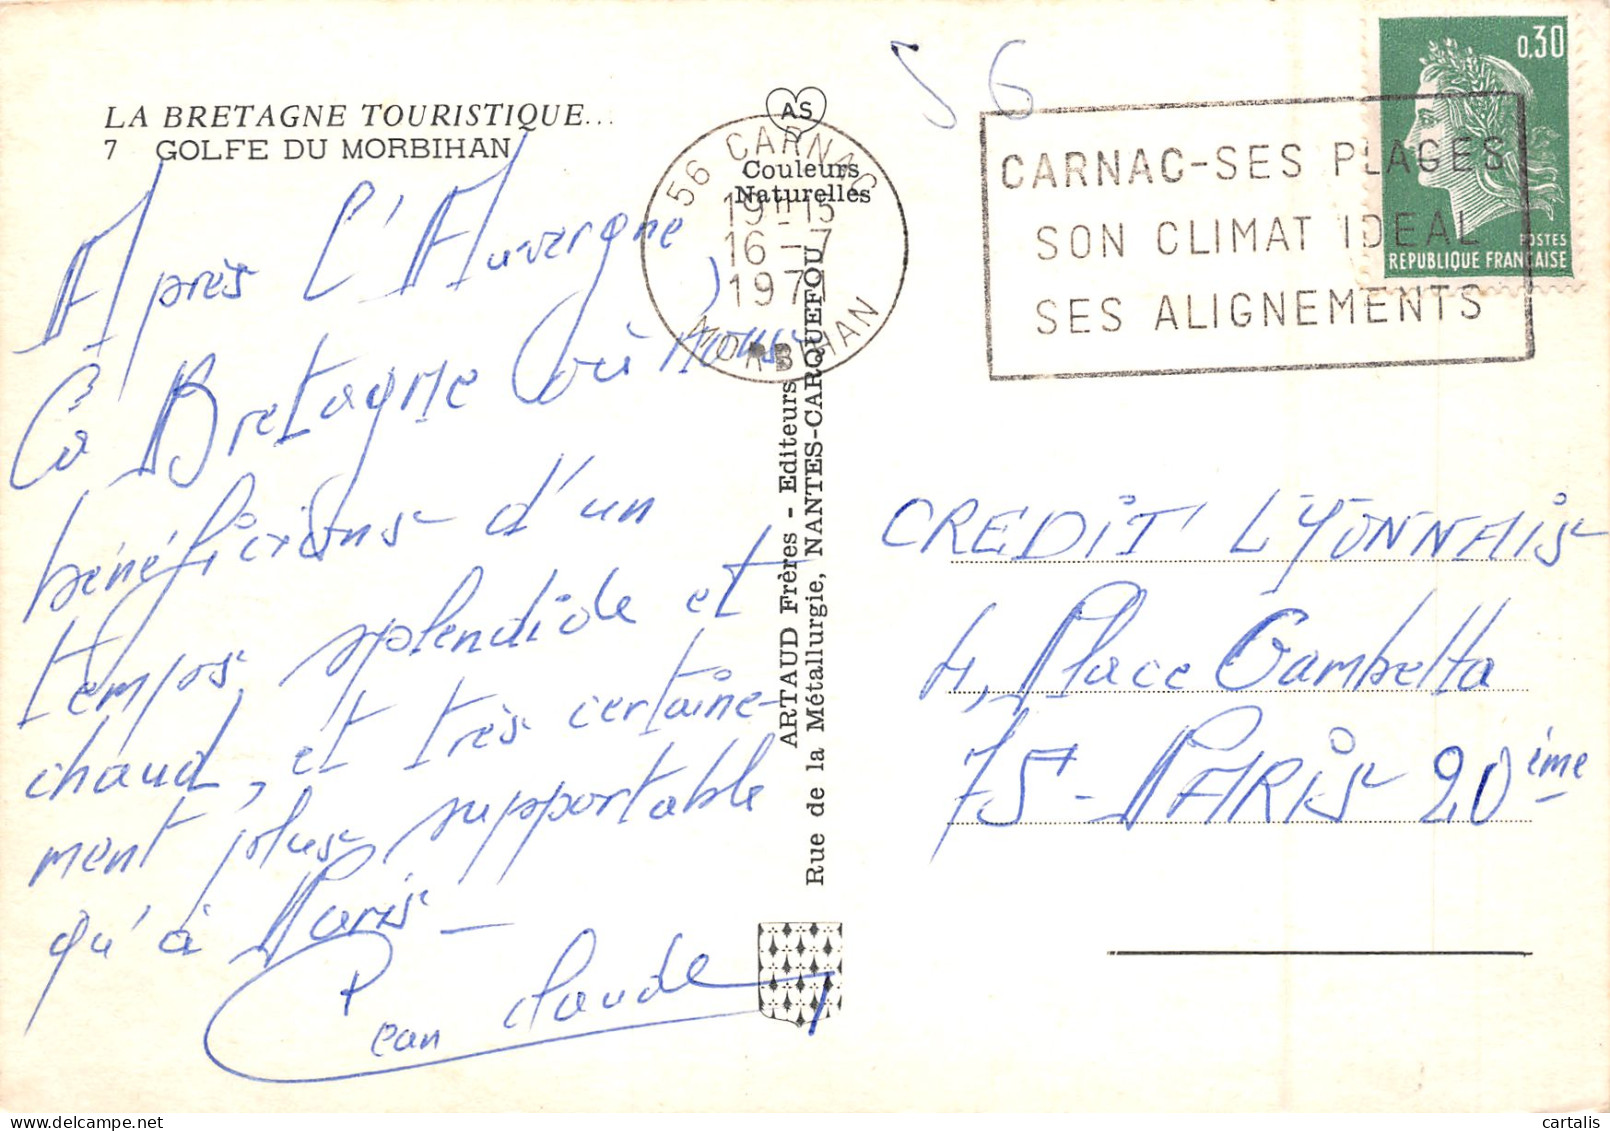 LA BRETAGNE TOURISTIQUE...
7 GOLFE DU MORBIHAN
Après l'Auvergne,
la Bretagne où nous
bénéficions d'un
temps splendide et
chaud, et très certaine-
ment plus supportable
qu'à Paris -
Jean Claude
AS
Couleurs
Naturelles
56 CARNAC
19H15
16-7
1971
MORBIHAN
ARTAUD Frères - Editeurs
Rue de la Métallurgie, NANTES-CARQUEFOU
56
CARNAC-SES PLAGES
SON CLIMAT IDEAL
SES ALIGNEMENTS
0,30
POSTES
REPUBLIQUE FRANÇAISE
CREDIT LYONNAIS
4, Place Gambetta
75 - PARIS 20ième
cartalis